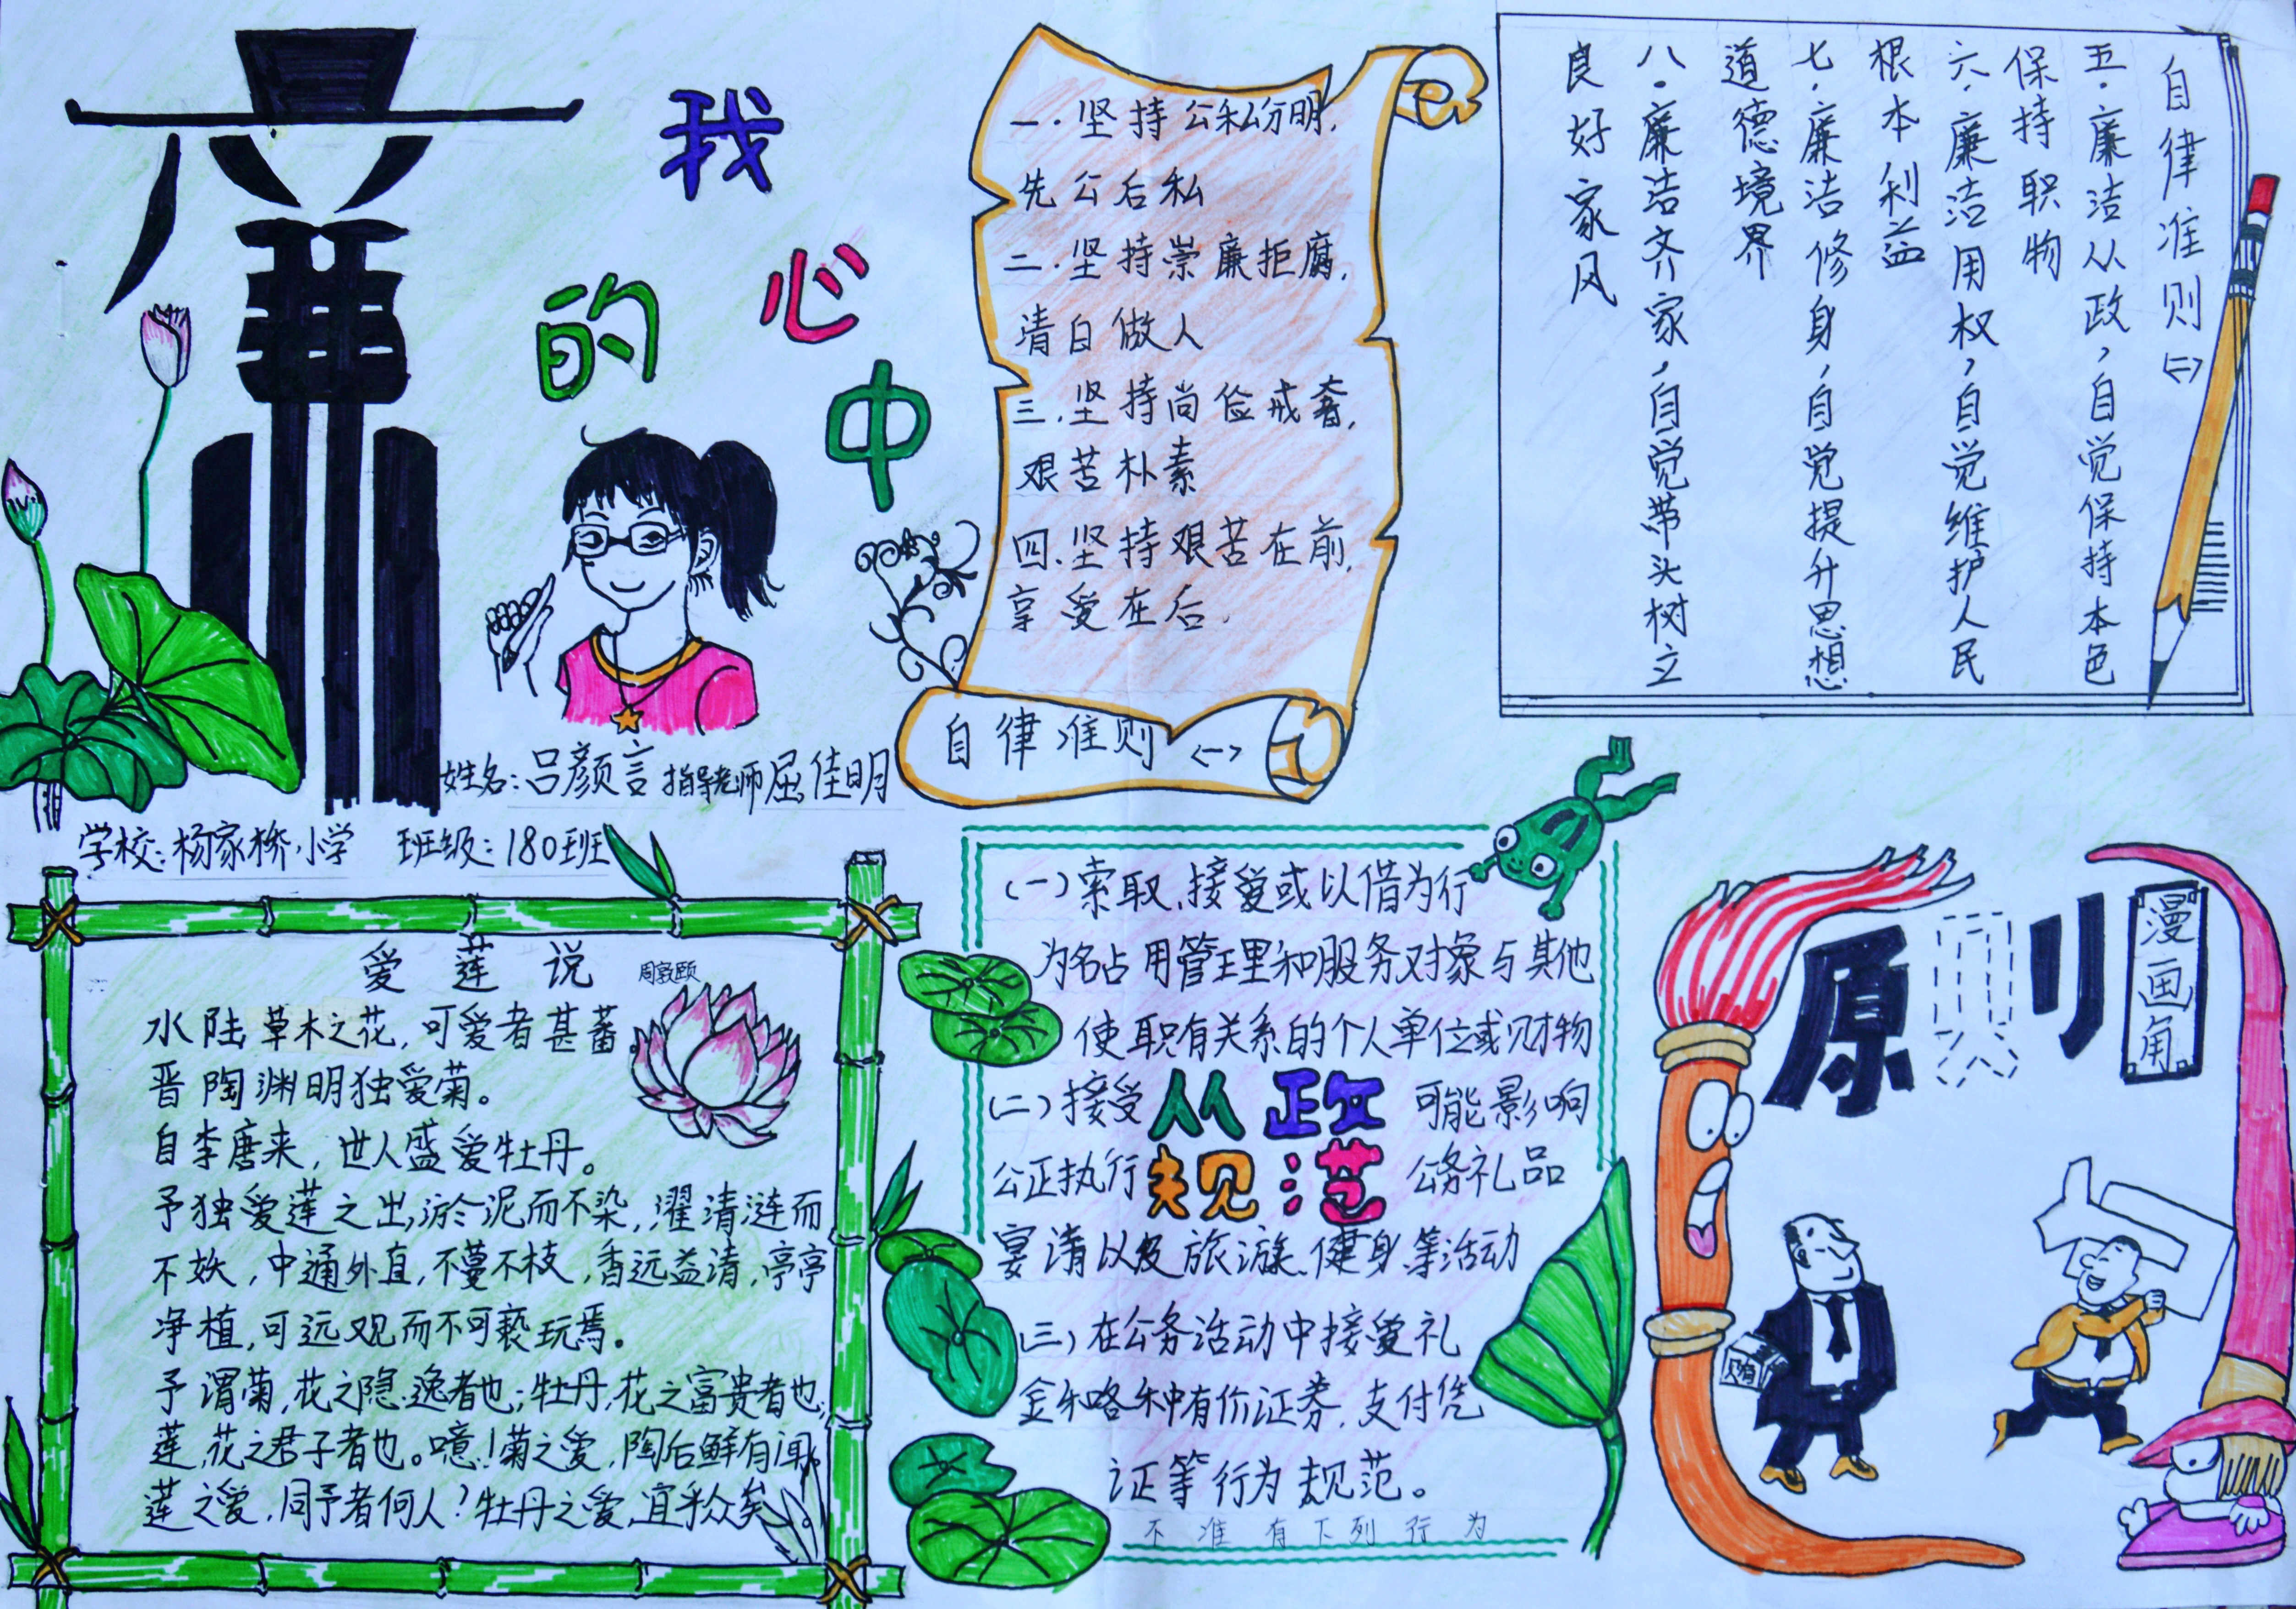 我
的
心
中
廉
姓名：吕颜言 指导老师 屈佳明
学校：杨家桥小学 班级：180班
一．坚持公私分明，
先公后私
二．坚持崇廉拒腐，
清白做人
三．坚持尚俭戒奢，
艰苦朴素
四．坚持艰苦在前，
享受在后．
自律准则 <一>
自律准则<二>
五．廉洁从政，自觉保持本色
保持职物
六．廉洁用权，自觉维护人民
根本利益
七．廉洁修身，自觉提升思想
道德境界
八．廉洁齐家，自觉带头树立
良好家风
爱莲说 周敦颐
水陆草木之花，可爱者甚蕃。
晋陶渊明独爱菊。
自李唐来，世人盛爱牡丹。
予独爱莲之出淤泥而不染，濯清涟而
不妖，中通外直，不蔓不枝，香远益清，亭亭
净植，可远观而不可亵玩焉。
予谓菊，花之隐逸者也；牡丹，花之富贵者也；
莲，花之君子者也。噫！菊之爱，陶后鲜有闻。
莲之爱，同予者何人？牡丹之爱，宜乎众矣。
(一)索取、接受或以借为行
为名占用管理和服务对象与其他
使职有关系的个人单位或财物
(二)接受 从政 可能影响
公正执行 规范 公务礼品
宴请以及旅游、健身等活动
(三)在公务活动中接受礼
金和各种有价证券，支付凭
证等行为规范。
不准有下列行为
原则
漫画角
贝有